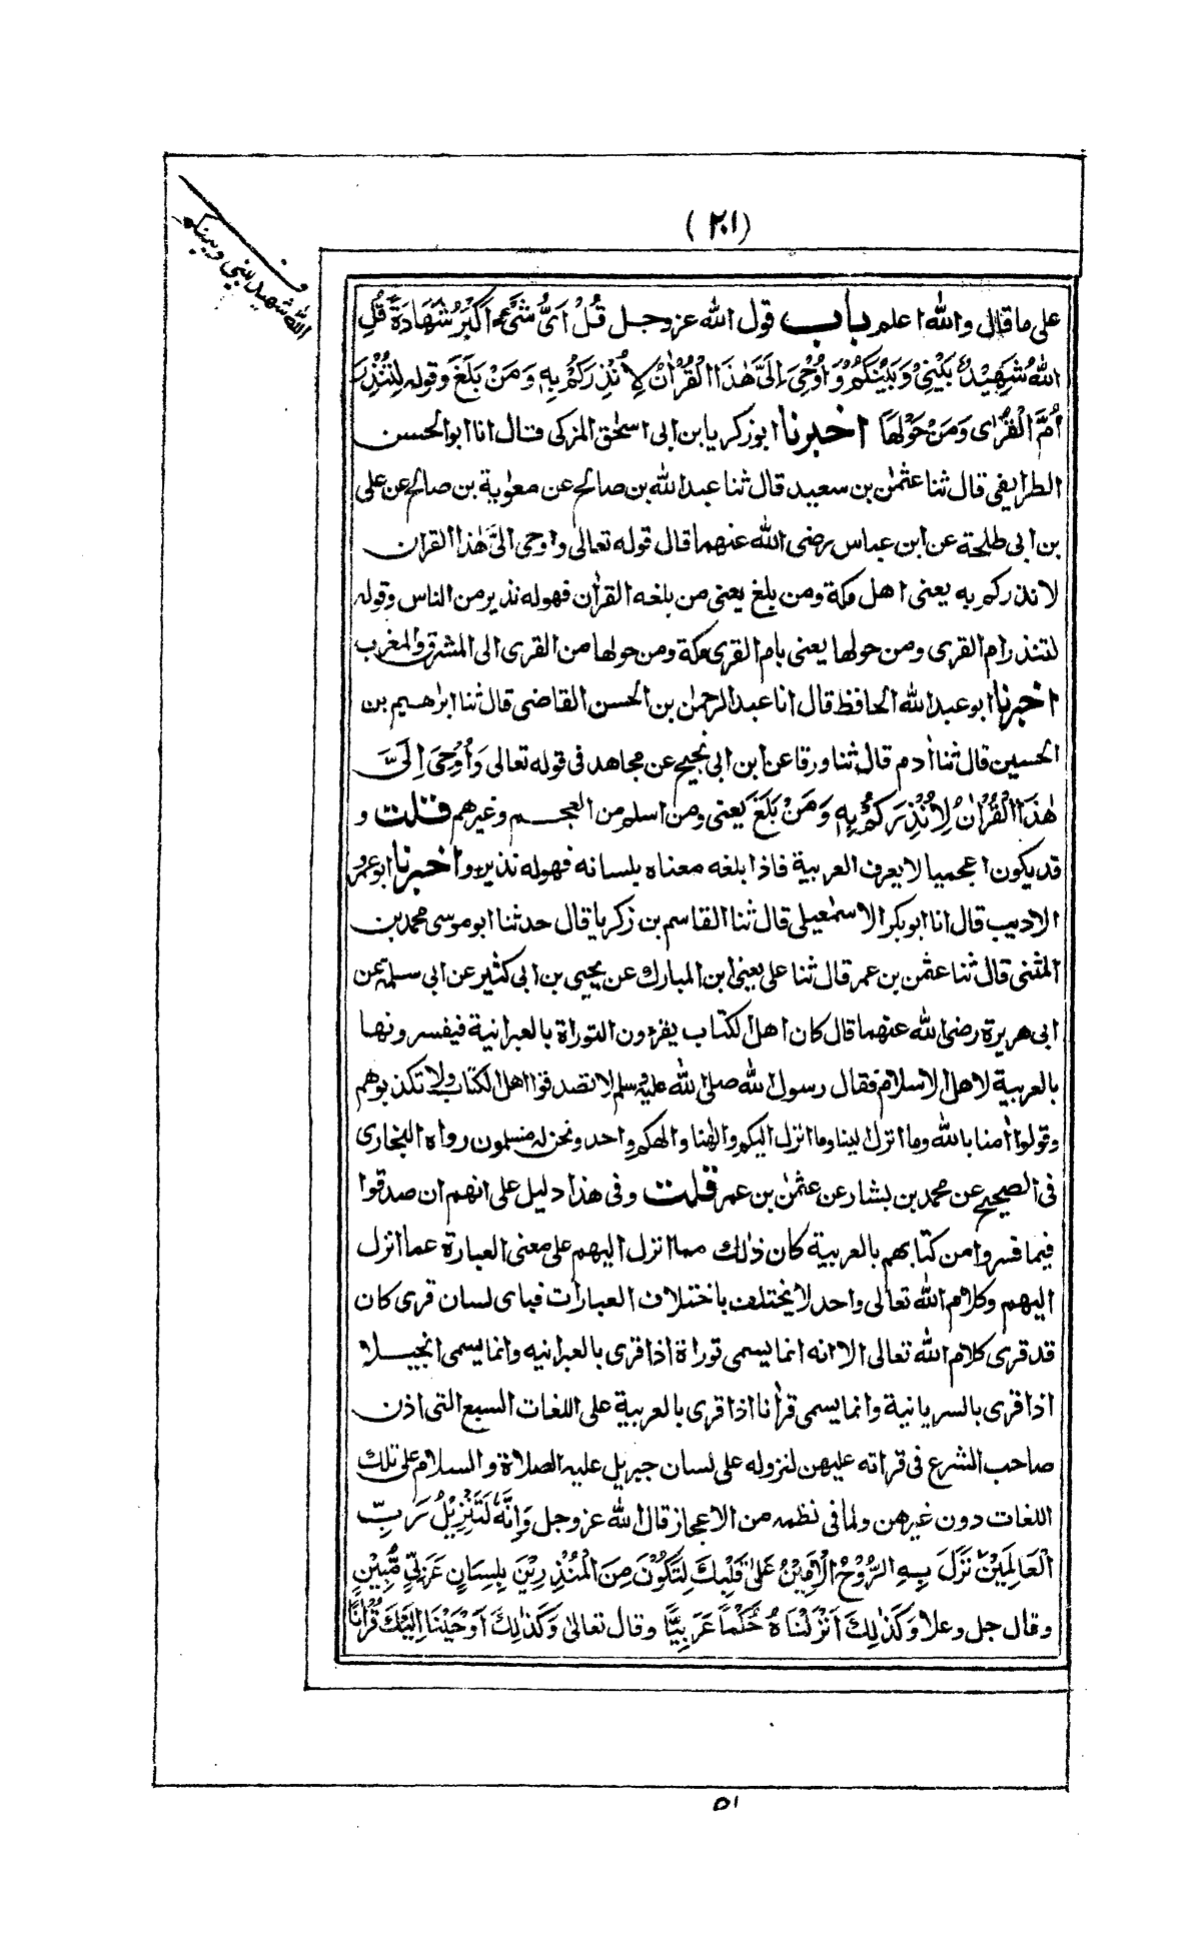 (۲۰۱)
الله شهيد بيني وبينكم
على ما قال والله اعلم باب قول الله عز وجل قُلْ اَىُّ شَىْءٍ اَكْبَرُ شَهَادَةً قُلِ
اللهُ شَهِيْدٌۢ بَيْنِىْ وَبَيْنَكُمْ وَاُوْحِىَ اِلَىَّ هٰذَا الْقُرْاٰنُ لِاُنْذِرَكُمْ بِهٖ وَمَنْ بَلَغَ وقوله لِتُنْذِرَ
اُمَّ الْقُرٰى وَمَنْ حَوْلَهَا اخبرنا ابو زكريا بن ابى اسحٰق المزكى قال انا ابوالحسن
الطرايفى قال ثنا عثمٰن بن سعيد قال ثنا عبدالله بن صالح عن معٰوية بن صالح عن على
بن ابى طلحة عن ابن عباس رضى الله عنهما قال قوله تعالى واوحى الىَّ هٰذا القران
لانذركم به يعنى اهل مكة ومن بلغ يعنى من بلغه القرأن فهوله نذير من الناس وقوله
لتنذر ام القرى ومن حولها يعنى بام القرى مكة ومن حولها من القرى الى المشرق والمغرب
اخبرنا ابو عبد الله الحافظ قال انا عبد الرحمٰن بن الحسن القاضى قال ثنا ابراهيم بن
الحسين قال ثنا اٰدم قال ثنا ورقا عن ابن ابى نجيح عن مجاهد فى قوله تعالى وَاُوْحِىَ اِلَىَّ
هٰذَا الْقُرْاٰنُ لِاُنْذِرَكُمْ بِهٖ وَمَنْ بَلَغَ يعنى ومن اسلم من العجم وغيرهم قلت و
قد يكون اعجميا لا يعرف العربية فاذا بلغه معناه بلسانه فهوله نذير واخبرنا ابو عمرو
الاديب قال انا ابوبكر الاسمٰعيلى قال ثنا القاسم بن زكريا قال حدثنا ابو موسى محمد بن
المثنى قال ثنا عثمن بن عمر قال ثنا على يعنى ابن المبارك عن يحيى بن ابى كثير عن ابى سلمة عن
ابى هريرة رضى الله عنهما قال كان اهل الكتاب يقرءون التوراة بالعبرانية فيفسرونها
بالعربية لاهل الاسلام فقال رسول الله صلى الله عليه وسلم لا تصدقوا اهل الكتاب ولا تكذبوهم
وقولوا اٰمنا بالله وما انزل الينا وما انزل اليكم والٰهنا والهكم واحد ونحن له مسلمون رواه البخارى
فى الصحيح عن محمد بن بشار عن عثمٰن بن عمر قلت وفى هذا دليل على انهم ان صدقوا
فيما فسروا من كتابهم بالعربية كان ذلك مما انزل اليهم على معنى العبارة عما انزل
اليهم وكلام الله تعالى واحد لا يختلف باختلاف العبارات فباى لسان قرى كان
قد قرى كلام الله تعالى الا انه انما يسمى توراة اذا قرى بالعبرانيه وانما يسمى انجيلا
اذا قرى بالسريانية وانما يسمى قرأنا اذا قرى بالعربية على اللغات السبع التى اذن
صاحب الشرع فى قراته عليهن لنزوله على لسان جبريل عليه الصلاة والسلام على تلك
اللغات دون غيرهن ولما فى نظمه من الاعجاز قال الله عز وجل وَاِنَّهٗ لَتَنْزِيْلُ رَبِّ
الْعَالَمِيْنَ نَزَلَ بِهِ الرُّوْحُ الْاَمِيْنُ عَلٰى قَلْبِكَ لِتَكُوْنَ مِنَ الْمُنْذِرِيْنَ بِلِسَانٍ عَرَبِىٍّ مُّبِيْنٍ
وقال جل وعلا وَكَذٰلِكَ اَنْزَلْنَاهُ حُكْمًا عَرَبِيًّا وقال تعالى وَكَذٰلِكَ اَوْحَيْنَا اِلَيْكَ قُرْاٰنًا
۵۱